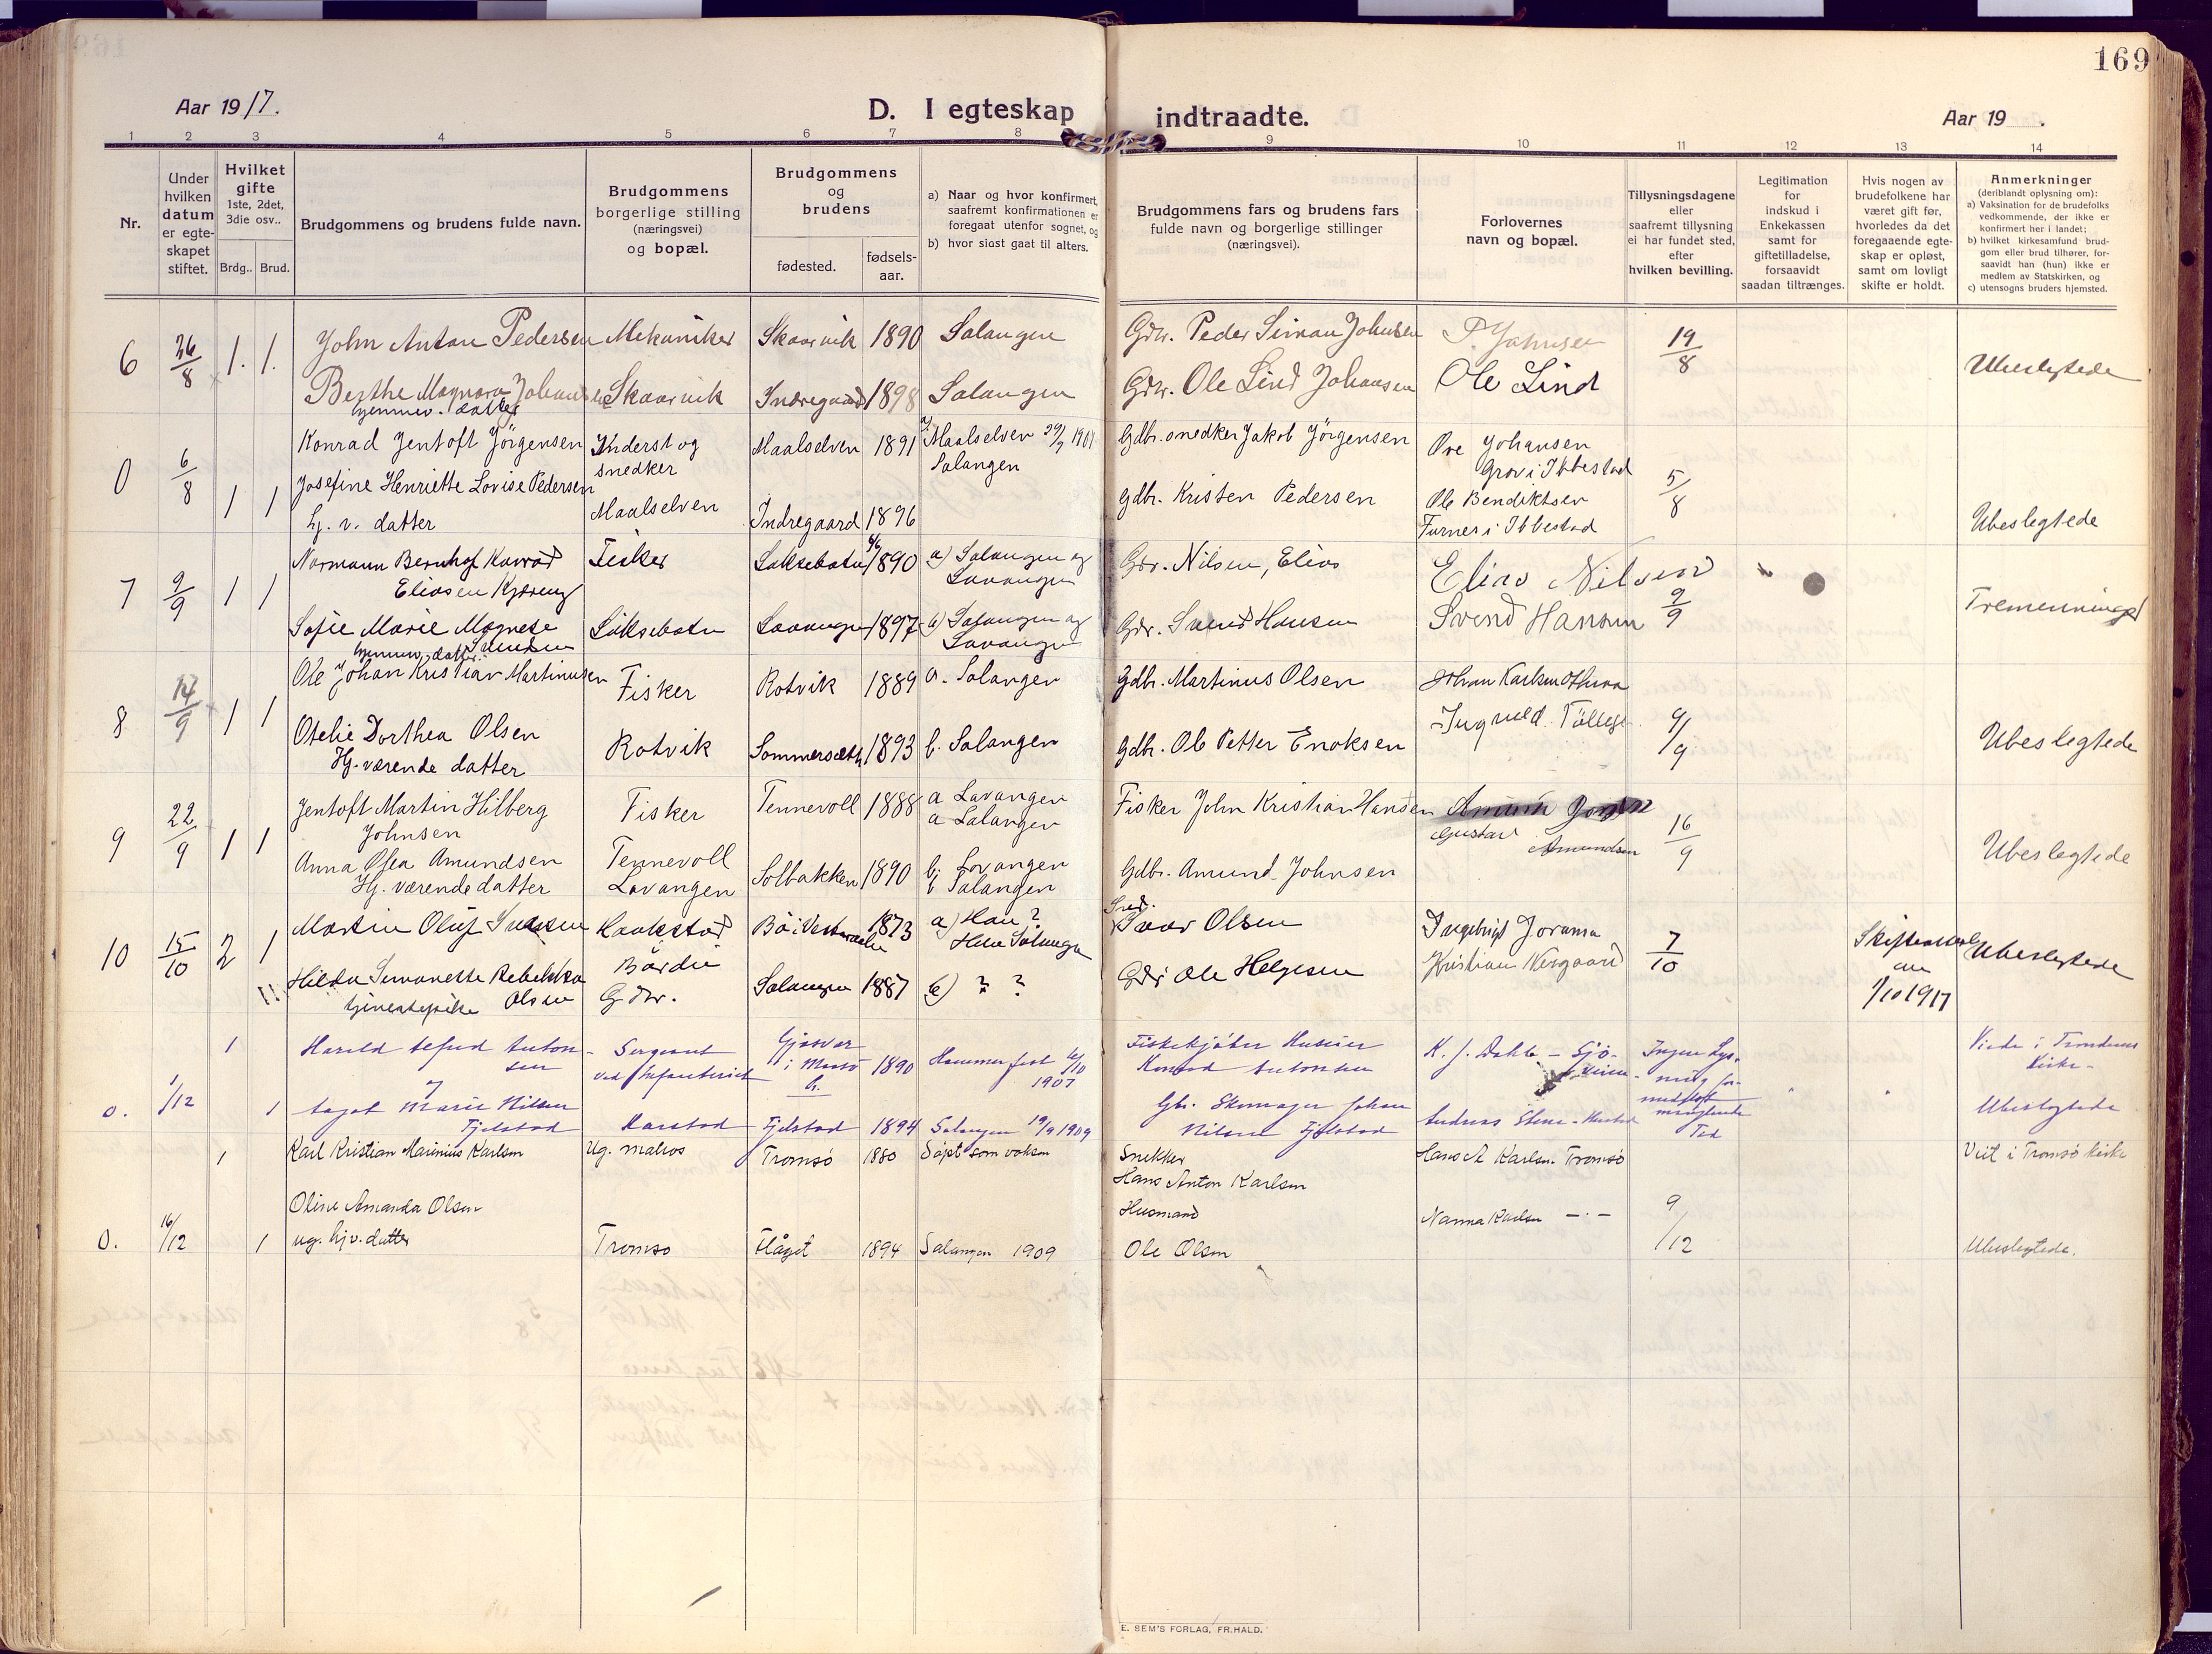 169
Aar 1917.
D. I egteskap indtraadte.
Aar 19 .
1 2 3 4 5 6 7 8 9 10 11 12 13 14
Nr.
Under hvilken datum er egte-skapet stiftet.
Hvilket gifte 1ste, 2det, 3die osv..
Brdg.. Brud.
Brudgommens og brudens fulde navn.
Brudgommens borgerlige stilling (næringsvei) og bopæl.
Brudgommens og brudens
fødested.
fødsels-aar.
a) Naar og hvor konfirmert, saafremt konfirmationen er foregaat utenfor sognet, og
b) hvor sidst gaat til alters.
Brudgommens fars og brudens fars fulde navn og borgerlige stillinger (næringsvei).
Forlovernes navn og bopæl.
Tillysningsdagene eller saafremt tillysning ei har fundet sted, efter hvilken bevilling.
Legitimation for indskud i Enkekassen samt for giftetilladelse, forsaavidt saadan tiltrænges.
Hvis nogen av brudefolkene har været gift før, hvorledes da det foregaaende egte-skap er opløst, samt om lovligt skifte er holdt.
Anmerkninger
(deriblandt oplysning om):
a) Vaksination for de brudefolks vedkommende, der ikke er konfirmert her i landet;
b) hvilket kirkesamfund brud-gom eller brud tilhører, for-saavidt han (hun) ikke er medlem av Statskirken, og
c) utensogns bruders hjemsted.
6 26/8 1. 1. John Antan Pedersen Mekaniker Skaarvik 1890 Salangen Gdr. Peder Siman Johnsen P. Johnsen 19/8
Berthe Magnora Johansen Skaarvik Indregaard 1898 Salangen Gdr. Ole Lind Johansen Ole Lind Ubeslegtede
hjemmev. datter
0 6/8 1 1 Konrad Jentoft Jörgensen Inderst og snedker Maalselven 1891 Maalselven 29/9 1907 Salangen Gdbr. snedker Jakob Jörgensen Ove Johansen Grov i Ibbestad 5/8
Josefine Henriette Lovise Pedersen Maalselven Indregaard 1896 Gdbr. Kristen Pedersen Ole Bendiktsen
Hj. v. datter Furnes i Ibbestad Ubeslegtede
7 9/9 1 1 Normann Bernhof Konrad Fisker Laksebotn 1890 a) Salangen og Lavangen Gdr. Nilsen, Elias Elias Nilsen 9/9
Eliasen Kjæreng
Sofie Marie Magnete Laksebotn Lavangen 1897 b) Salangen og Lavangen Gdr. Svend Hansen Svend Hansen Tremenninger
hjemmev. datter
8 17/9 1 1 Ole Johan Kristian Martinusen Fisker Rotvik 1889 a. Salangen Gdbr. Martinus Olsen Johan Karlsen
Otelie Dorthea Olsen Rotvik Sommersæth 1893 b. Salangen Gdbr. Ole Petter Enoksen 9/9 Ubeslegtede
Hj. værende datter
9 22/9 1 1 Jentoft Martin Hilberg Fisker Tennevoll 1888 a Lavangen a Salangen Fisker John Kristian Hansen
Johnsen Gustav Amundsen 16/9
Anna Olea Amundsen Tennevoll Solbakken 1890 b. Lavangen b Salangen Gdbr. Amund Johnsen Ubeslegtede
Hj. værende datter Lavangen
10 15/10 2 1 Martin Oluf Haakstad Bö i Vesteraalen 1873 a) Han ? Hun Salangen Ivar Olsen Ingebrigt 7/10 Ubeslegtede
Hilda Simonette Rebekka Bardu Salangen 1887 b) ? ? Gdr. Ole Helgesen Kristian Nergaard 1/10 1917
tjenestepike Olsen Gdr.
1 Harald Anton-sen Sergeant ved Infanteriet Gjæsvær i Maasö 1890 Hammerfest 6/10 1907 Konrad Antonsen K. J. Dahle Viede i Trondenes kirke
o. 1/12 og
1 Marie Nilsen Fjelstad Harstad Fjelstad 1894 Salangen 19/9 1909 Gbr. Skomager Johan Nilsen Fjelstad Andreas Ubeslegtede
1 Karl Kristian Marinius Karlsen Ug. matros Tromsö 1880 Döpt som voksen Snekker Hans Anton Karlsen Hans A Karlsen. Tromsö Viet i Tromsö kirke
Oline Amanda Olsen Husmand Nanna Karlsen — · — 9/12
0. 16/12 1 ug. hjv. datter Tromsö Flåget 1894 Salangen 1909 Ole Olsen Ubeslegtede.
E. SEM'S FORLAG, FR.HALD.